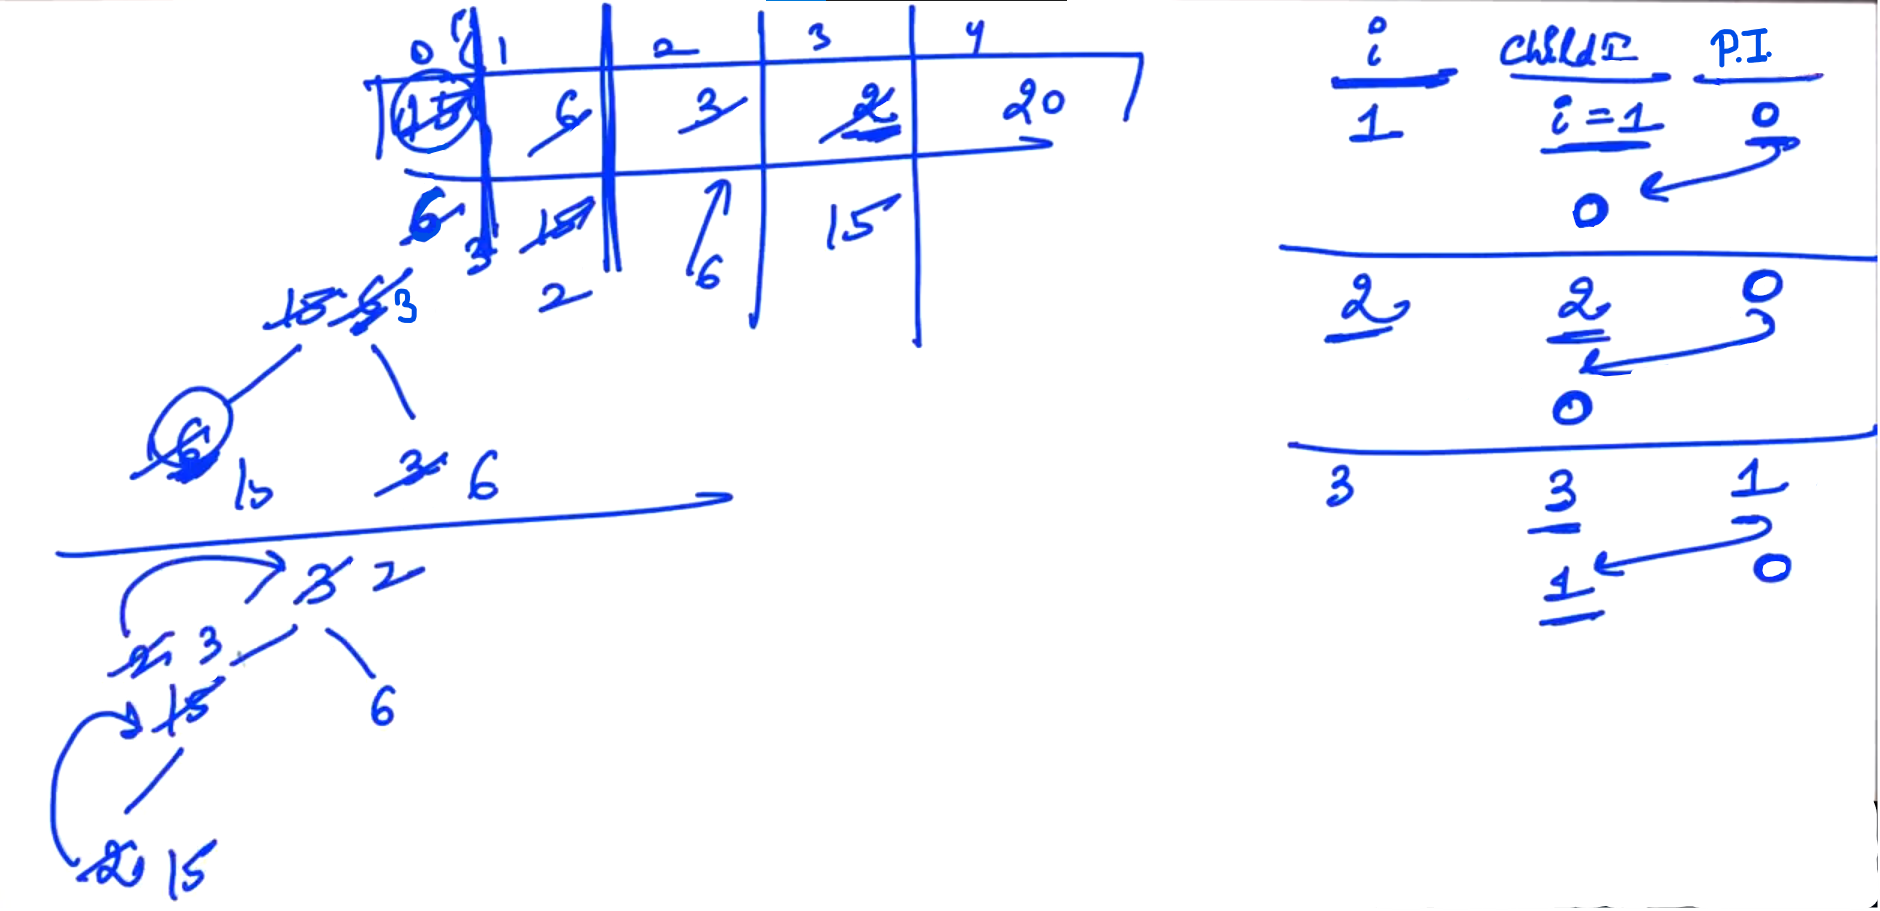 0 1 2 3 4
15 6 3 2 20
6 3 15 15
2 6
15 6 3
6 15 3 6
3 2
2 3
15 6
2 15
i ChildI P.I.
1 i=1 0
0
2 2 0
0
3 3 1
1 0